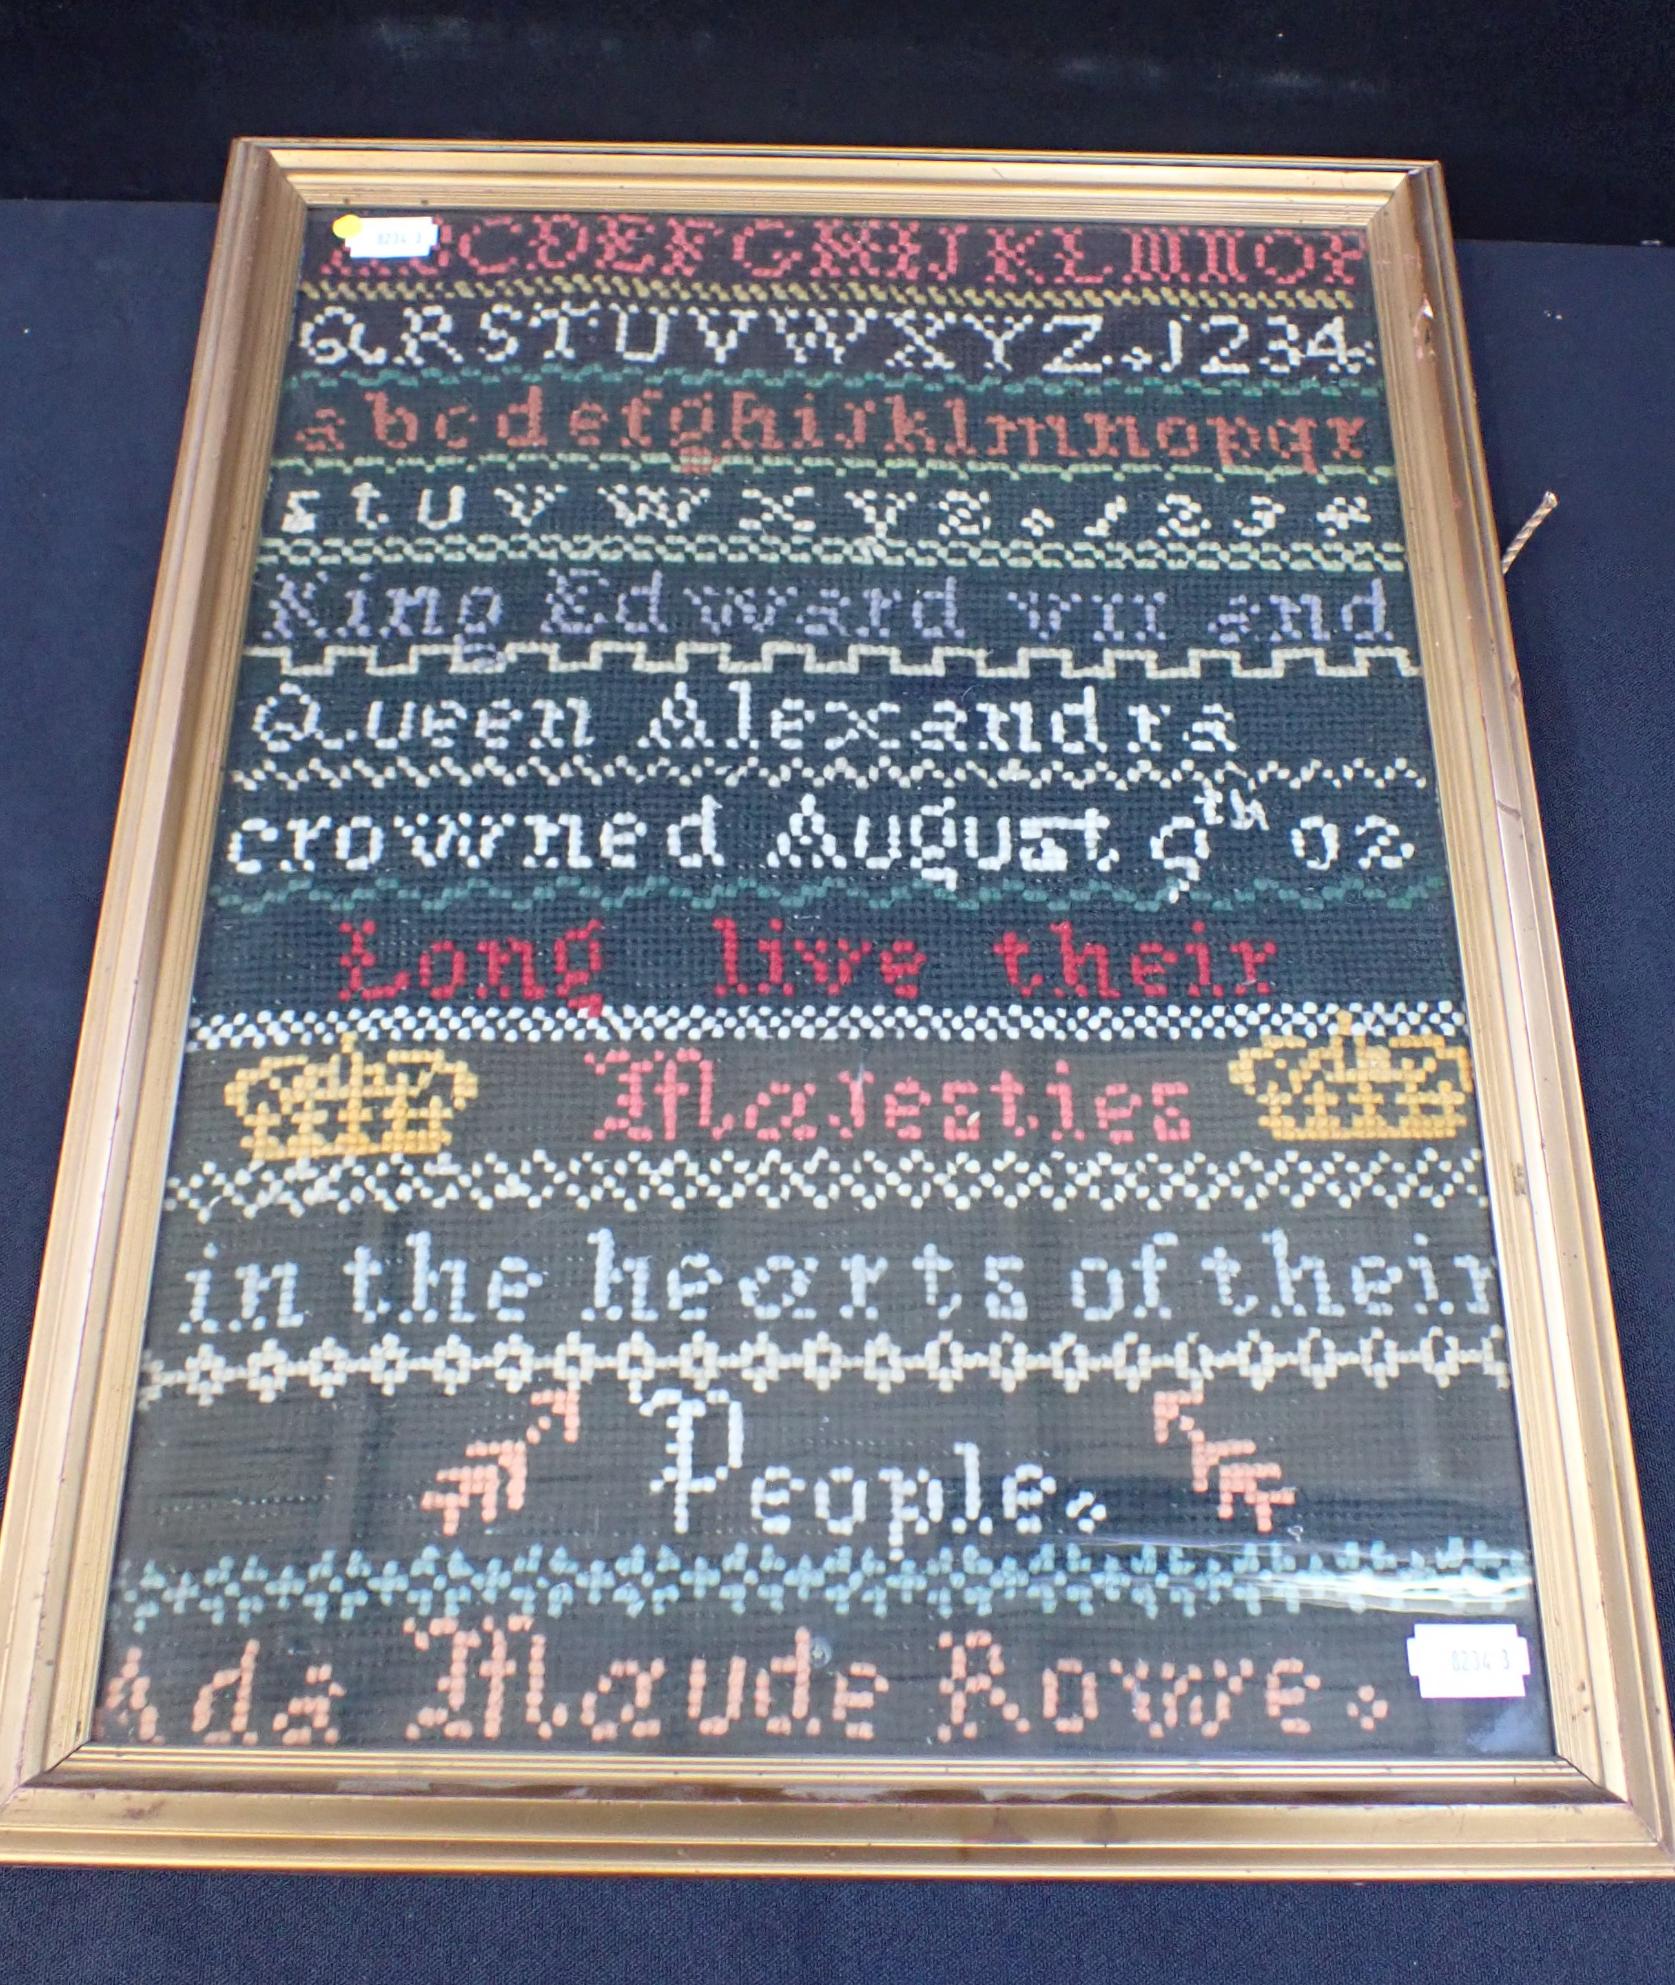 8234 3
ABCDEFGHIJKLMNOP
QRSTUVWXYZ.1234.
abcdefghijklmnopqr
stuvwxyz.1234
King Edward VII and
Queen Alexandra
crowned August 9th 02
Long live their
Majesties
in the hearts of their
People.
Ada Maude Rowe.
8234 3